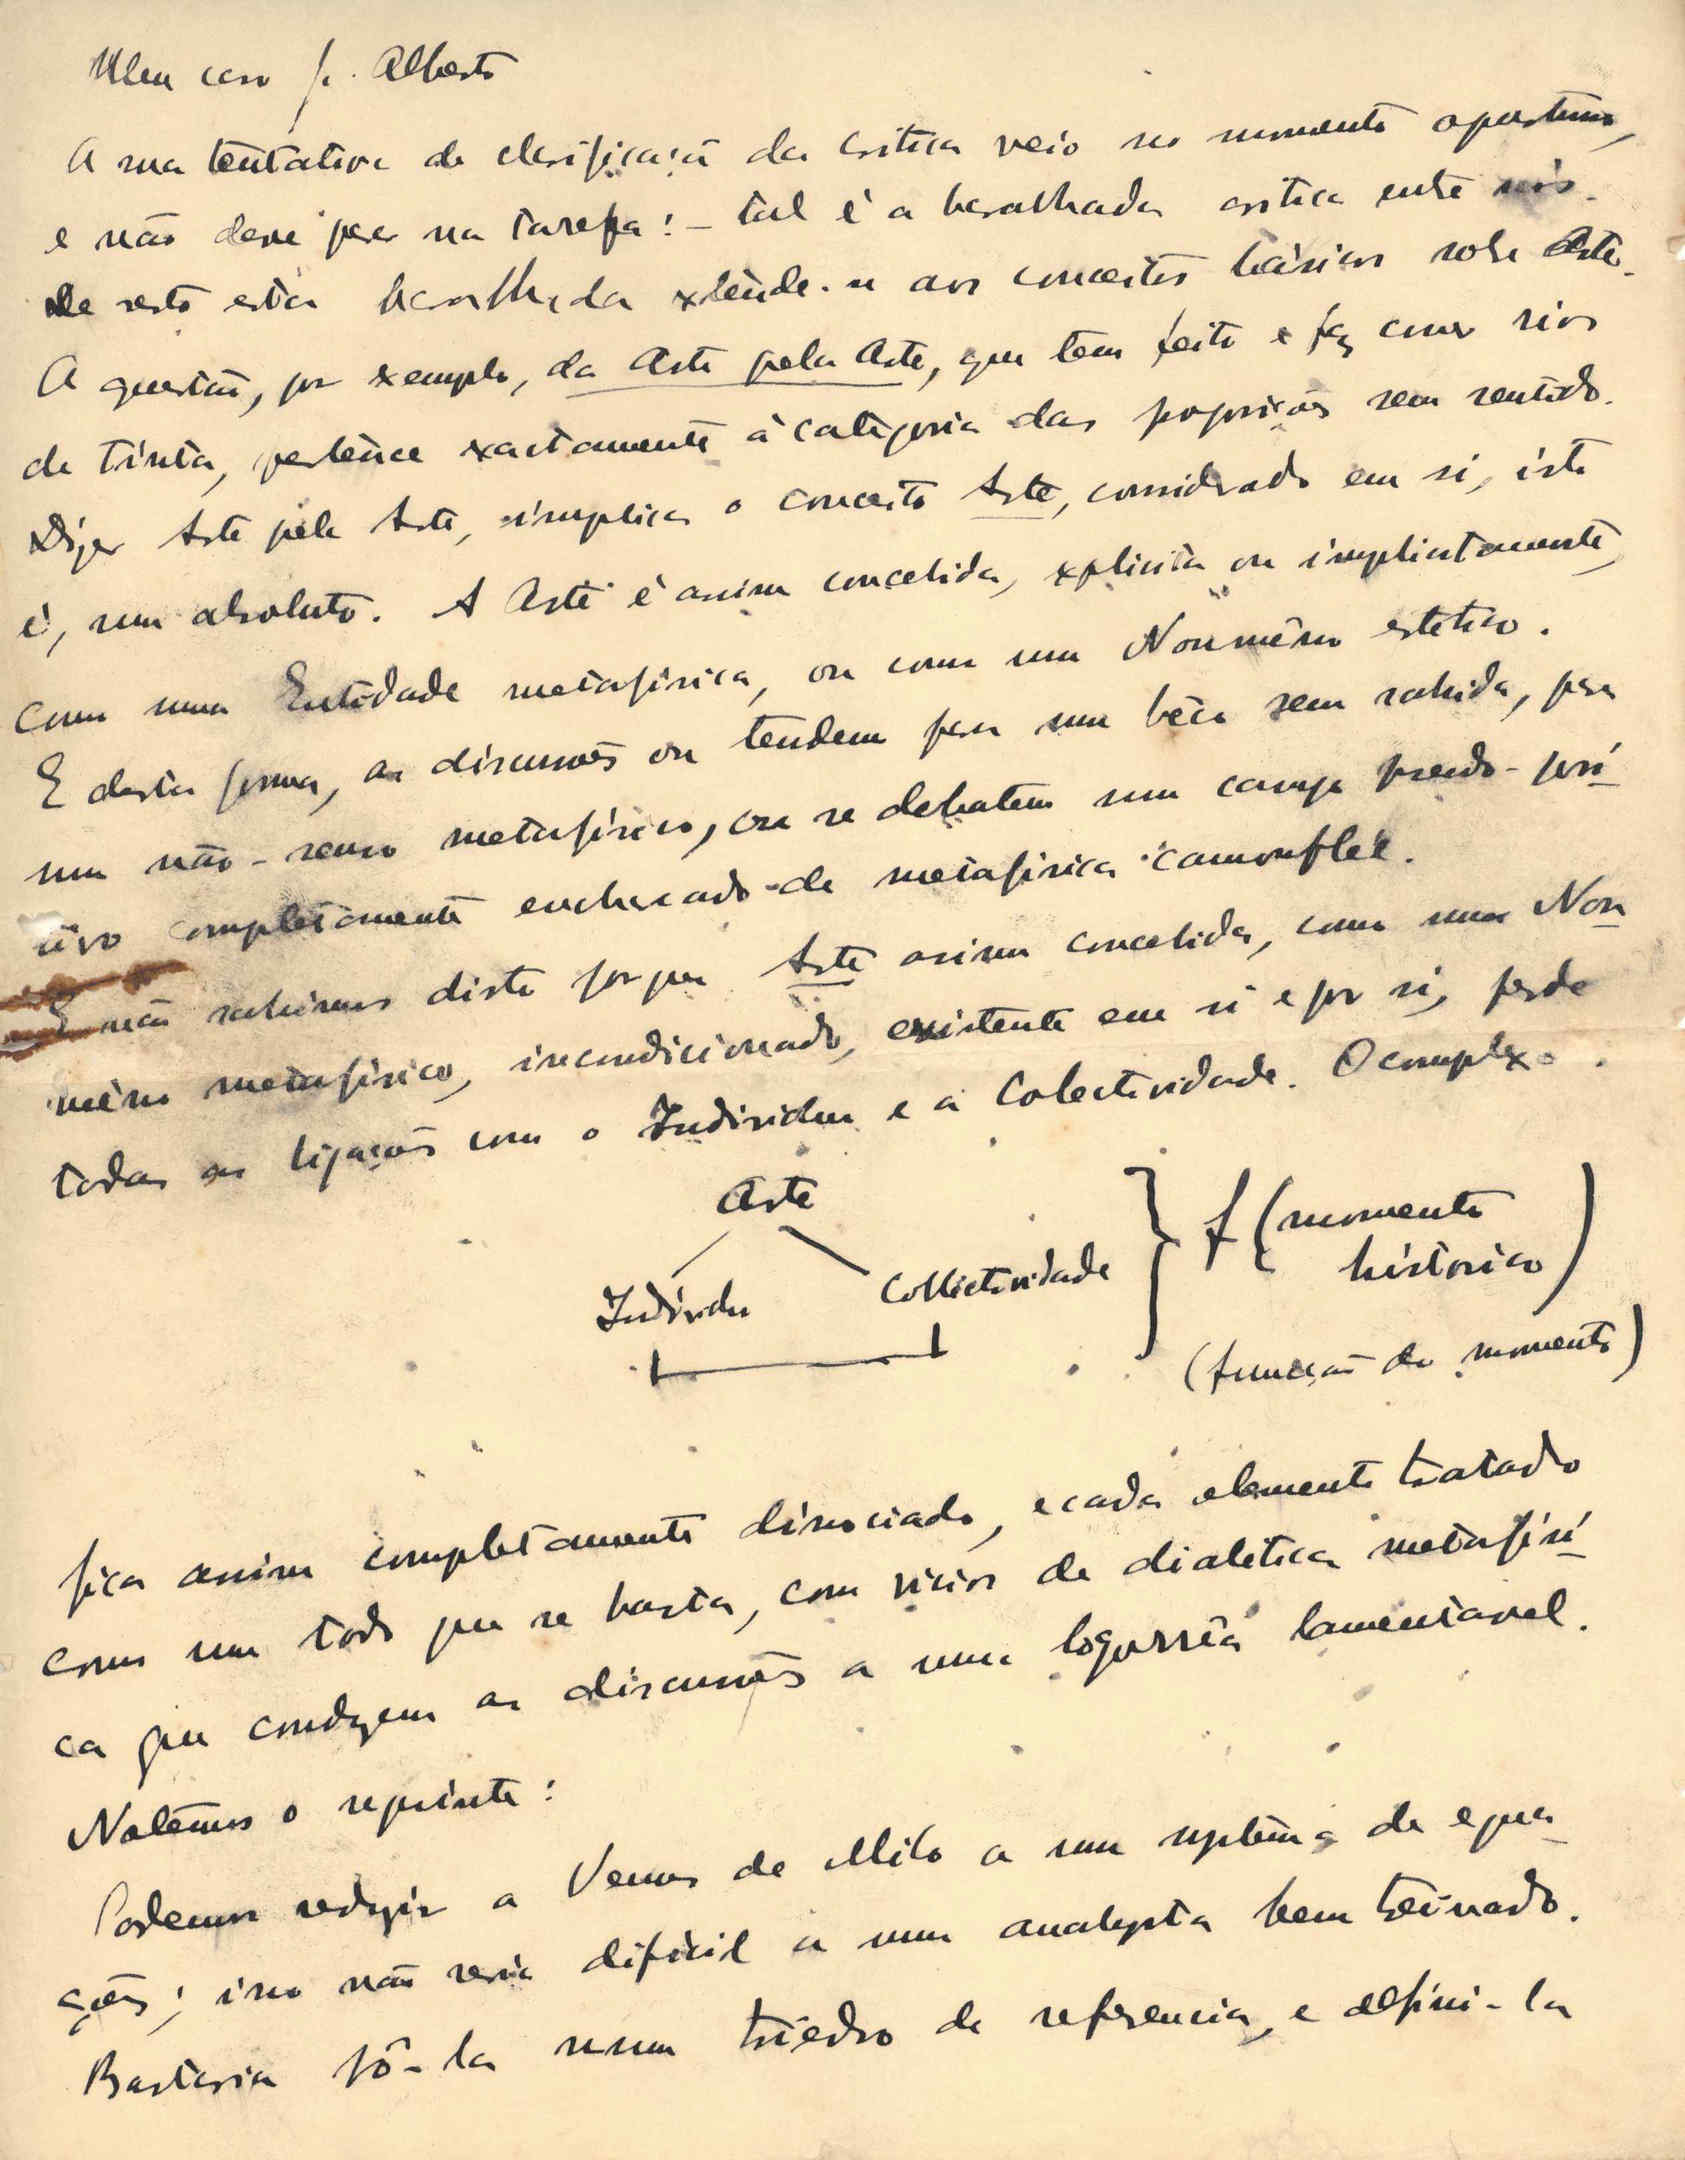 Meu caro J. Alberto
A sua tentativa de clarificação da critica veio no momento oportuno,
e não deve parar na tarefa: - tal é a baralhada critica entre nós.
De resto esta baralhada extende-se aos conceitos básicos sobre Arte.
A questão, por exemplo, da Arte pela Arte, que tem feito e faz correr rios
de tinta, pertence exactamente á categoria das proposições sem sentido.
Dizer Arte pela Arte, implica o conceito Arte, considerado em si, isto
é, um absoluto. A Arte é assim concebida, explicita ou implicitamente,
como uma Entidade metafisica, ou como um Noumêno estetico.
E desta forma, as discussões ou tendem para um bêco sem sahida, para
um não-senso metafisico, ou se debatem num campo pseudo-posi-
tivo completamente encharcado de metafisica camouflée.
E não sahimos disto porque Arte assim concebida, como um Nou-
mêno metafisico, incondicionado, existente em si e por si, perde
todas as ligações com o Individuo e a Colectividade. O complexo
Arte
Individuo
Collectividade
} f (momento
historico)
(função do momento)
fica assim completamente dissociado, e cada elemento tratado
como um todo que se basta, com vicios de dialetica metafisi-
ca que conduzem as discussões a uma logorrêa lamentavel.
Notêmos o seguinte:
Podemos reduzir a Venus de Milo a um systêma de equa-
ções; isso não seria dificil a um analysta bem treinado.
Bastaria pô-la num triedro de referencia, e defini-la